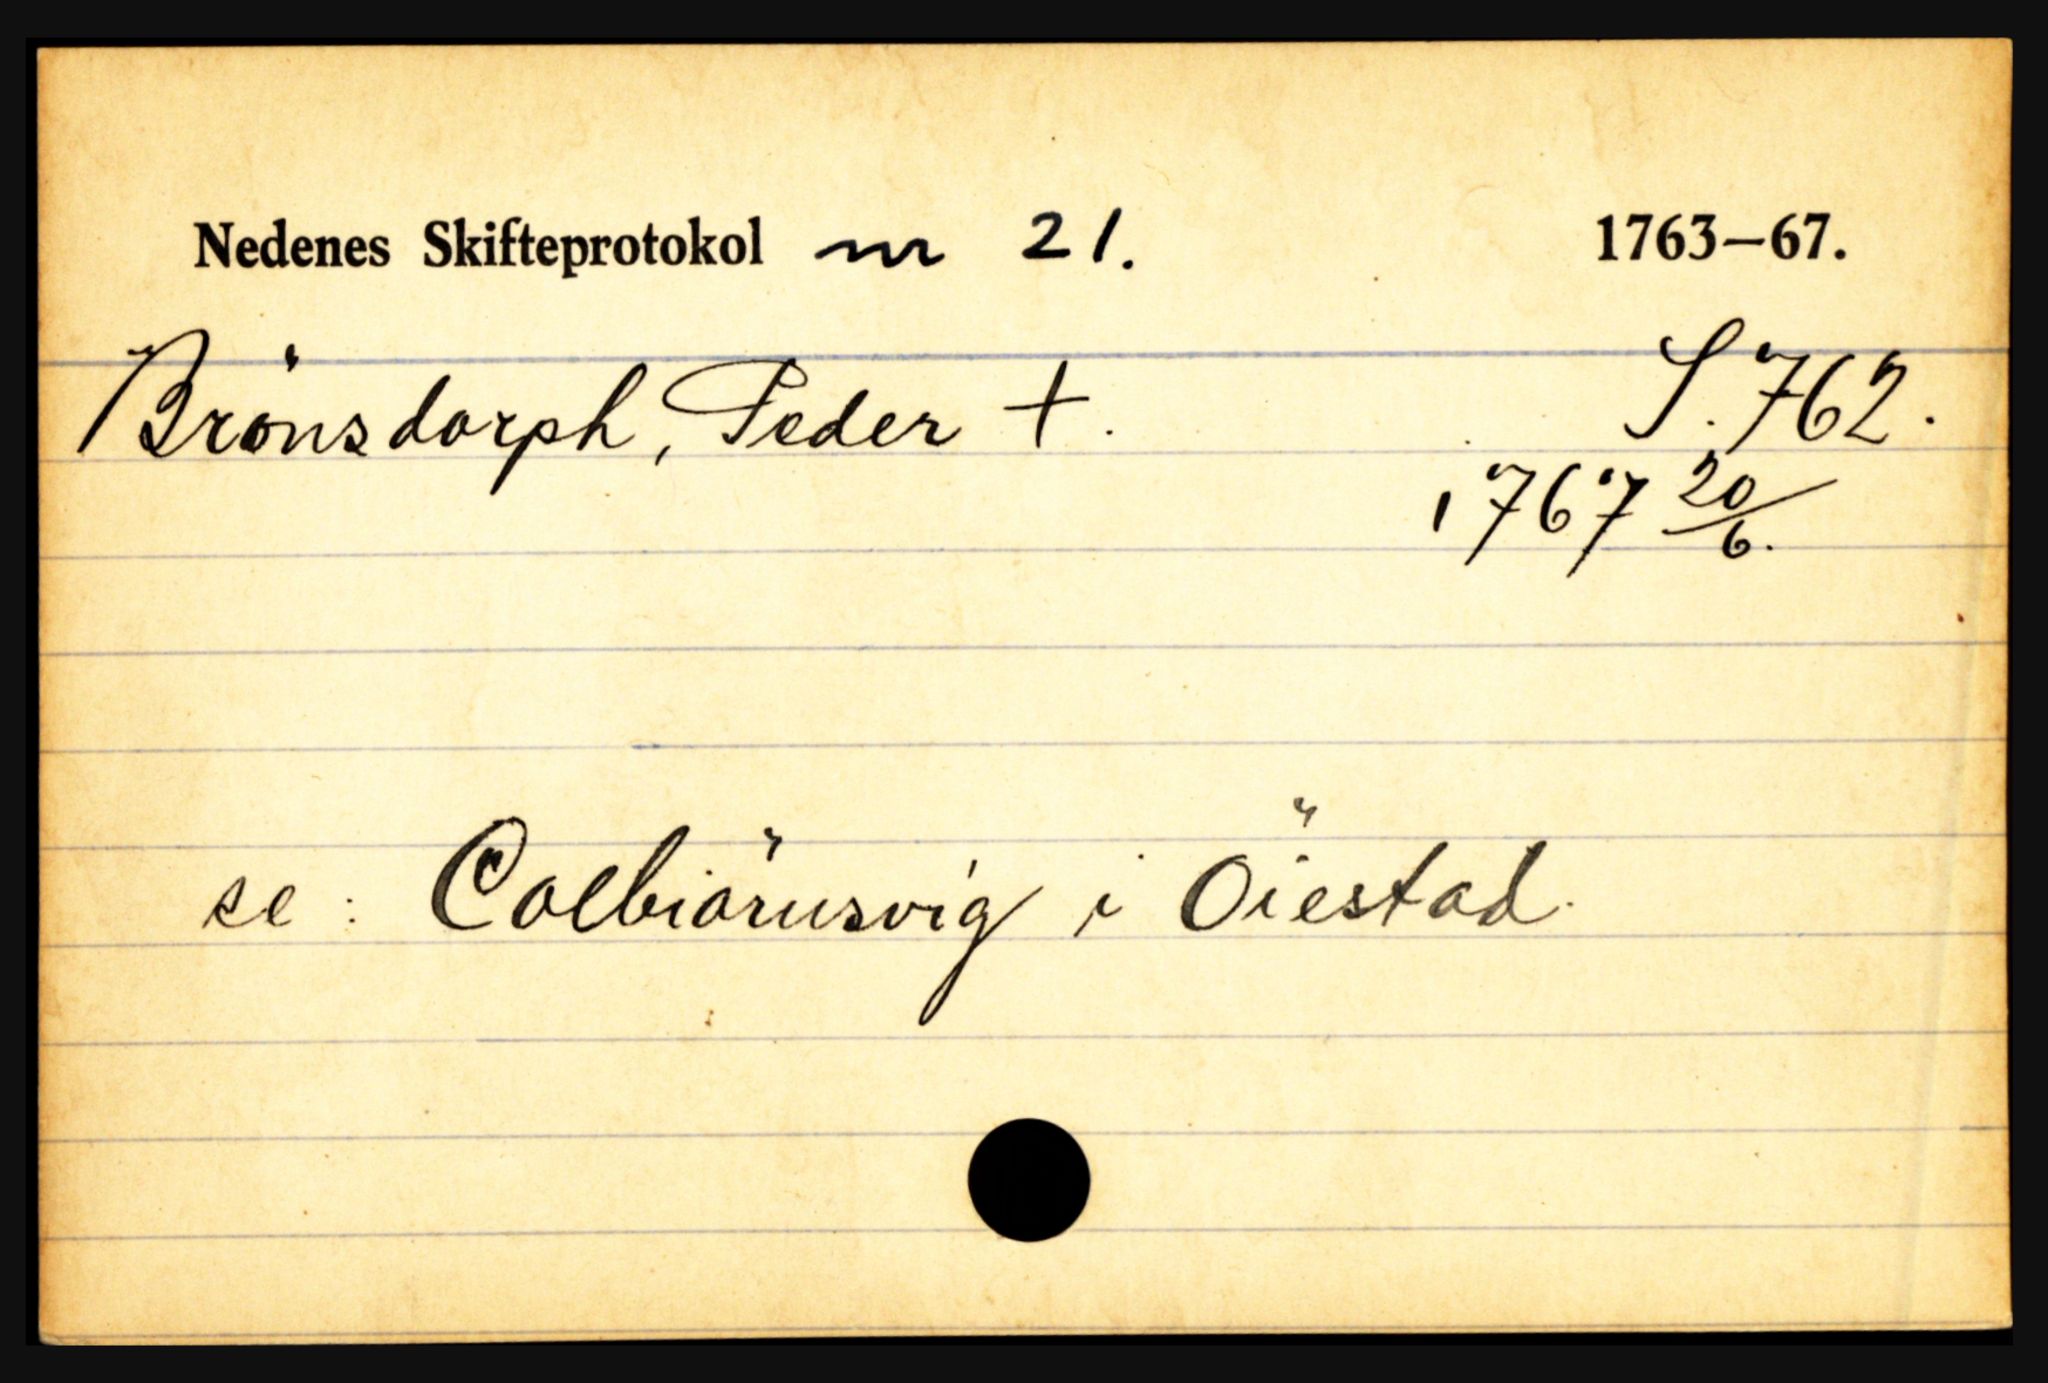 Nedenes Skifteprotokol nr 21. 1763—67.
Brönsdorph, Peder †. S. 762.
1767 20/6.
se: Colbiörnsvig i Öiestad.